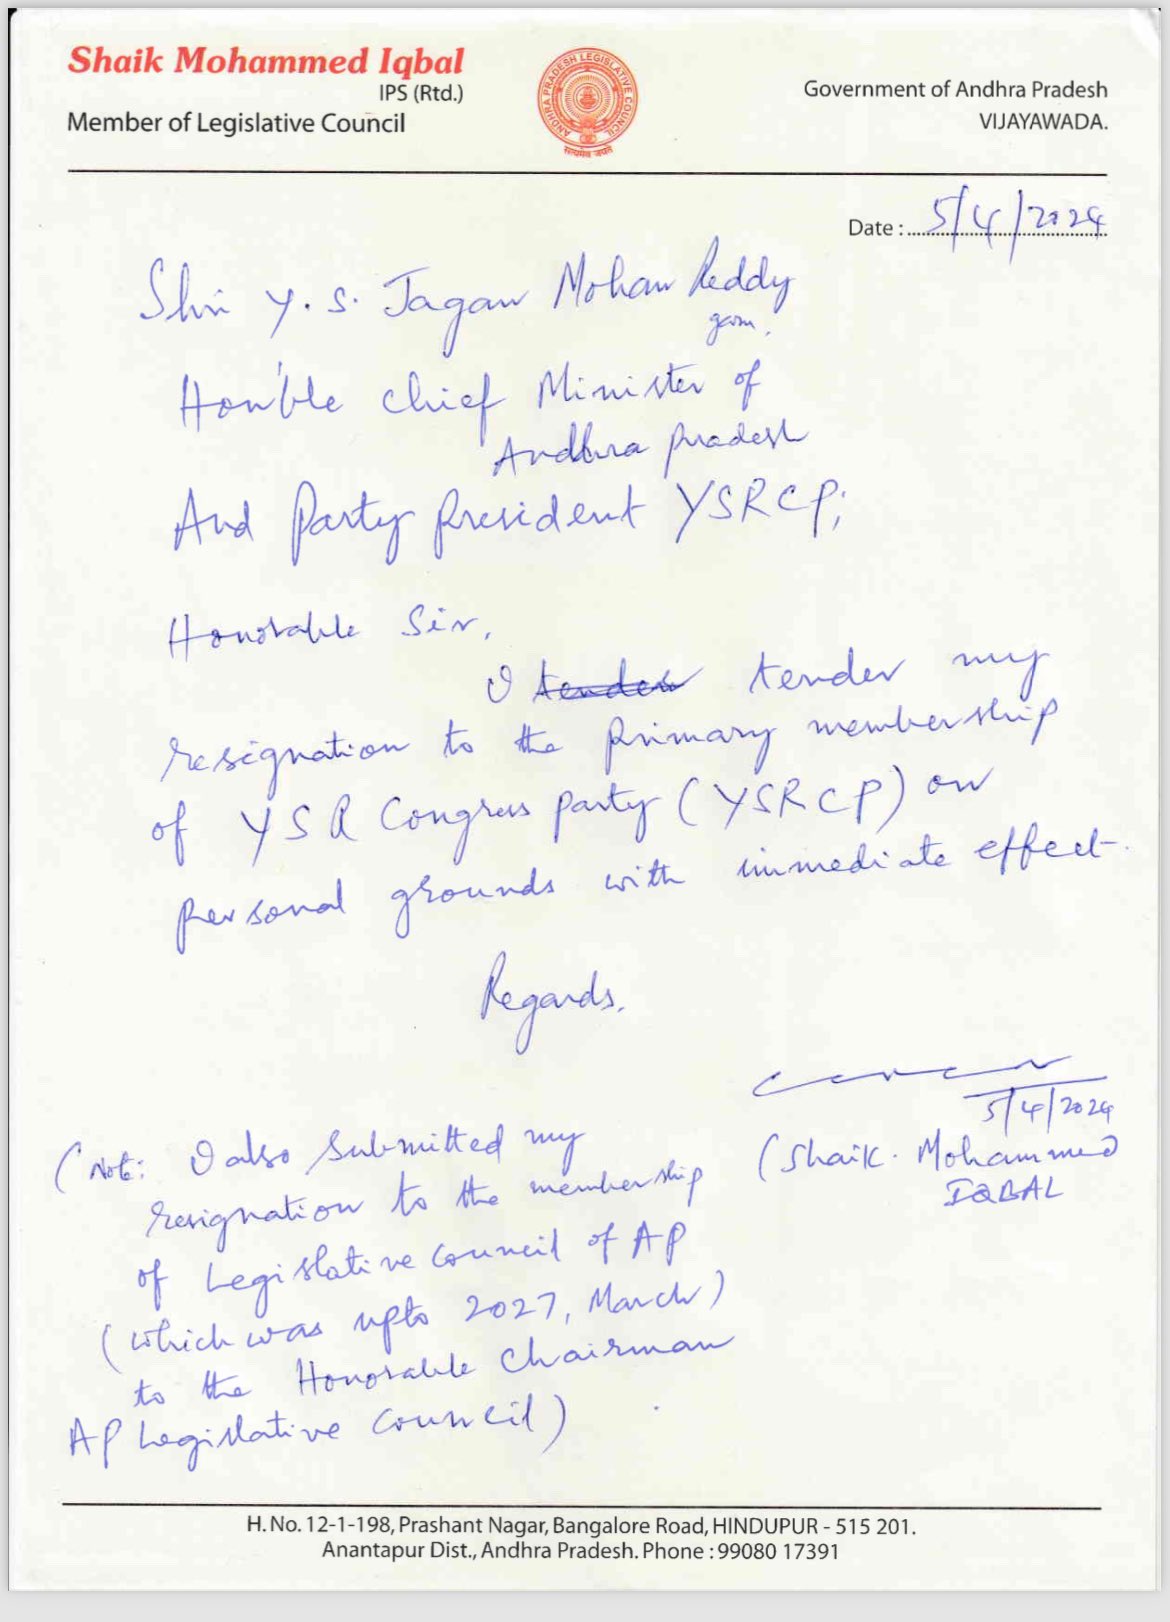 Shaik Mohammed Iqbal
IPS (Rtd.)
Member of Legislative Council
ANDHRA PRADESH LEGISLATIVE COUNCIL
सत्यमेव जयते
Government of Andhra Pradesh
VIJAYAWADA.
Date : 5/4/2024
Shri Y. S. Jagan Mohan Reddy
garu.
Hon'ble Chief Minister of
Andhra Pradesh
And Party President YSRCP;
Honorable Sir,
I tender tender my
resignation to the Primary membership
of YSR Congress Party (YSRCP) on
personal grounds with immediate effect.
Regards.
5/4/2024
(Shaik. Mohammed
IQBAL
(Note: I also submitted my
resignation to the membership
of Legislative Council of AP
(which was upto 2027, March)
to the Honorable Chairman
AP Legislative Council)
H. No. 12-1-198, Prashant Nagar, Bangalore Road, HINDUPUR - 515 201.
Anantapur Dist., Andhra Pradesh. Phone : 99080 17391